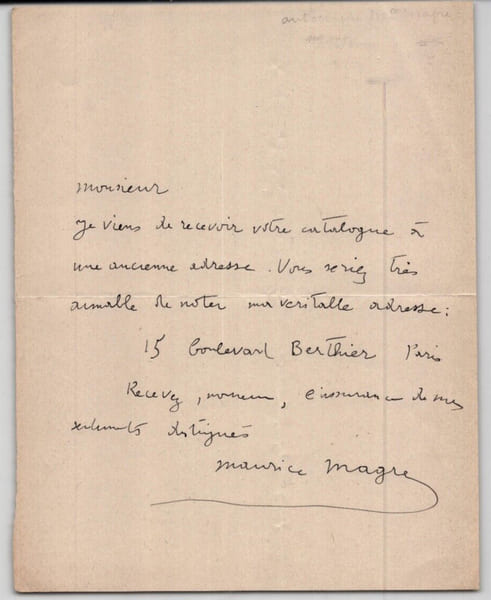 monsieur
Je viens de recevoir votre catalogue à
une ancienne adresse. Vous seriez très
aimable de noter ma veritable adresse :
15 boulevard Berthier Paris
Recevez, monsieur, l'assurance de mes
sentiments distingués
maurice magre